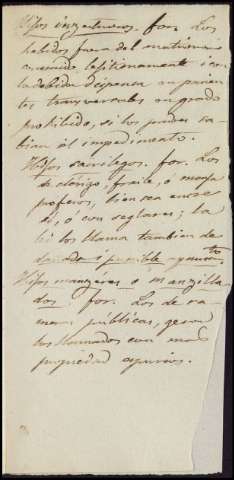 Hijos incestuosos. for. Los
habidos fuera del matrimonio
contraido legítimamente i con
la debida dispensa en parien-
tes transversales en grado
prohibido, si los padres sa-
bian el impedimento.
Hijos sacrílegos. for. Los
de clérigo, fraile, ó monja
profesos, bien sea entre
sí, ó con seglares; la
lei los llama tambien de
dañado i punible ayuntto
Hijos manzéres ó manzilla-
dos; for. Los de ra-
meras públicas, que son
los llamados con mas
propiedad espurios.